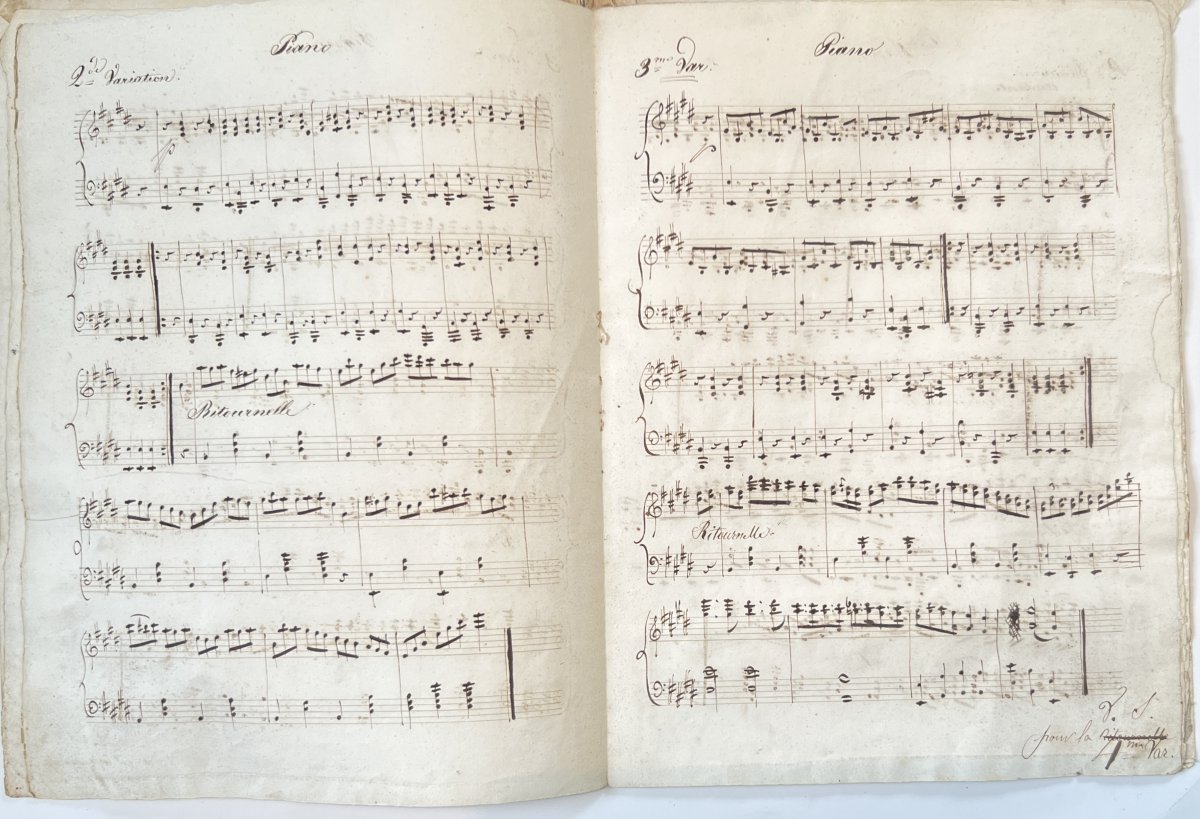 Piano
2de Variation.
p
Ritournelle
Piano
3me Var:
p
Ritournelle
V. S.
pour la Ritournelle
4me Var.